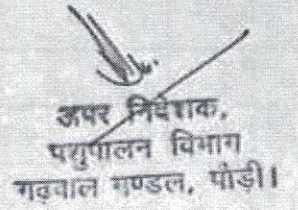 अपर निदेशक,
पशुपालन विभाग
गढ़वाल मण्डल, पौड़ी।